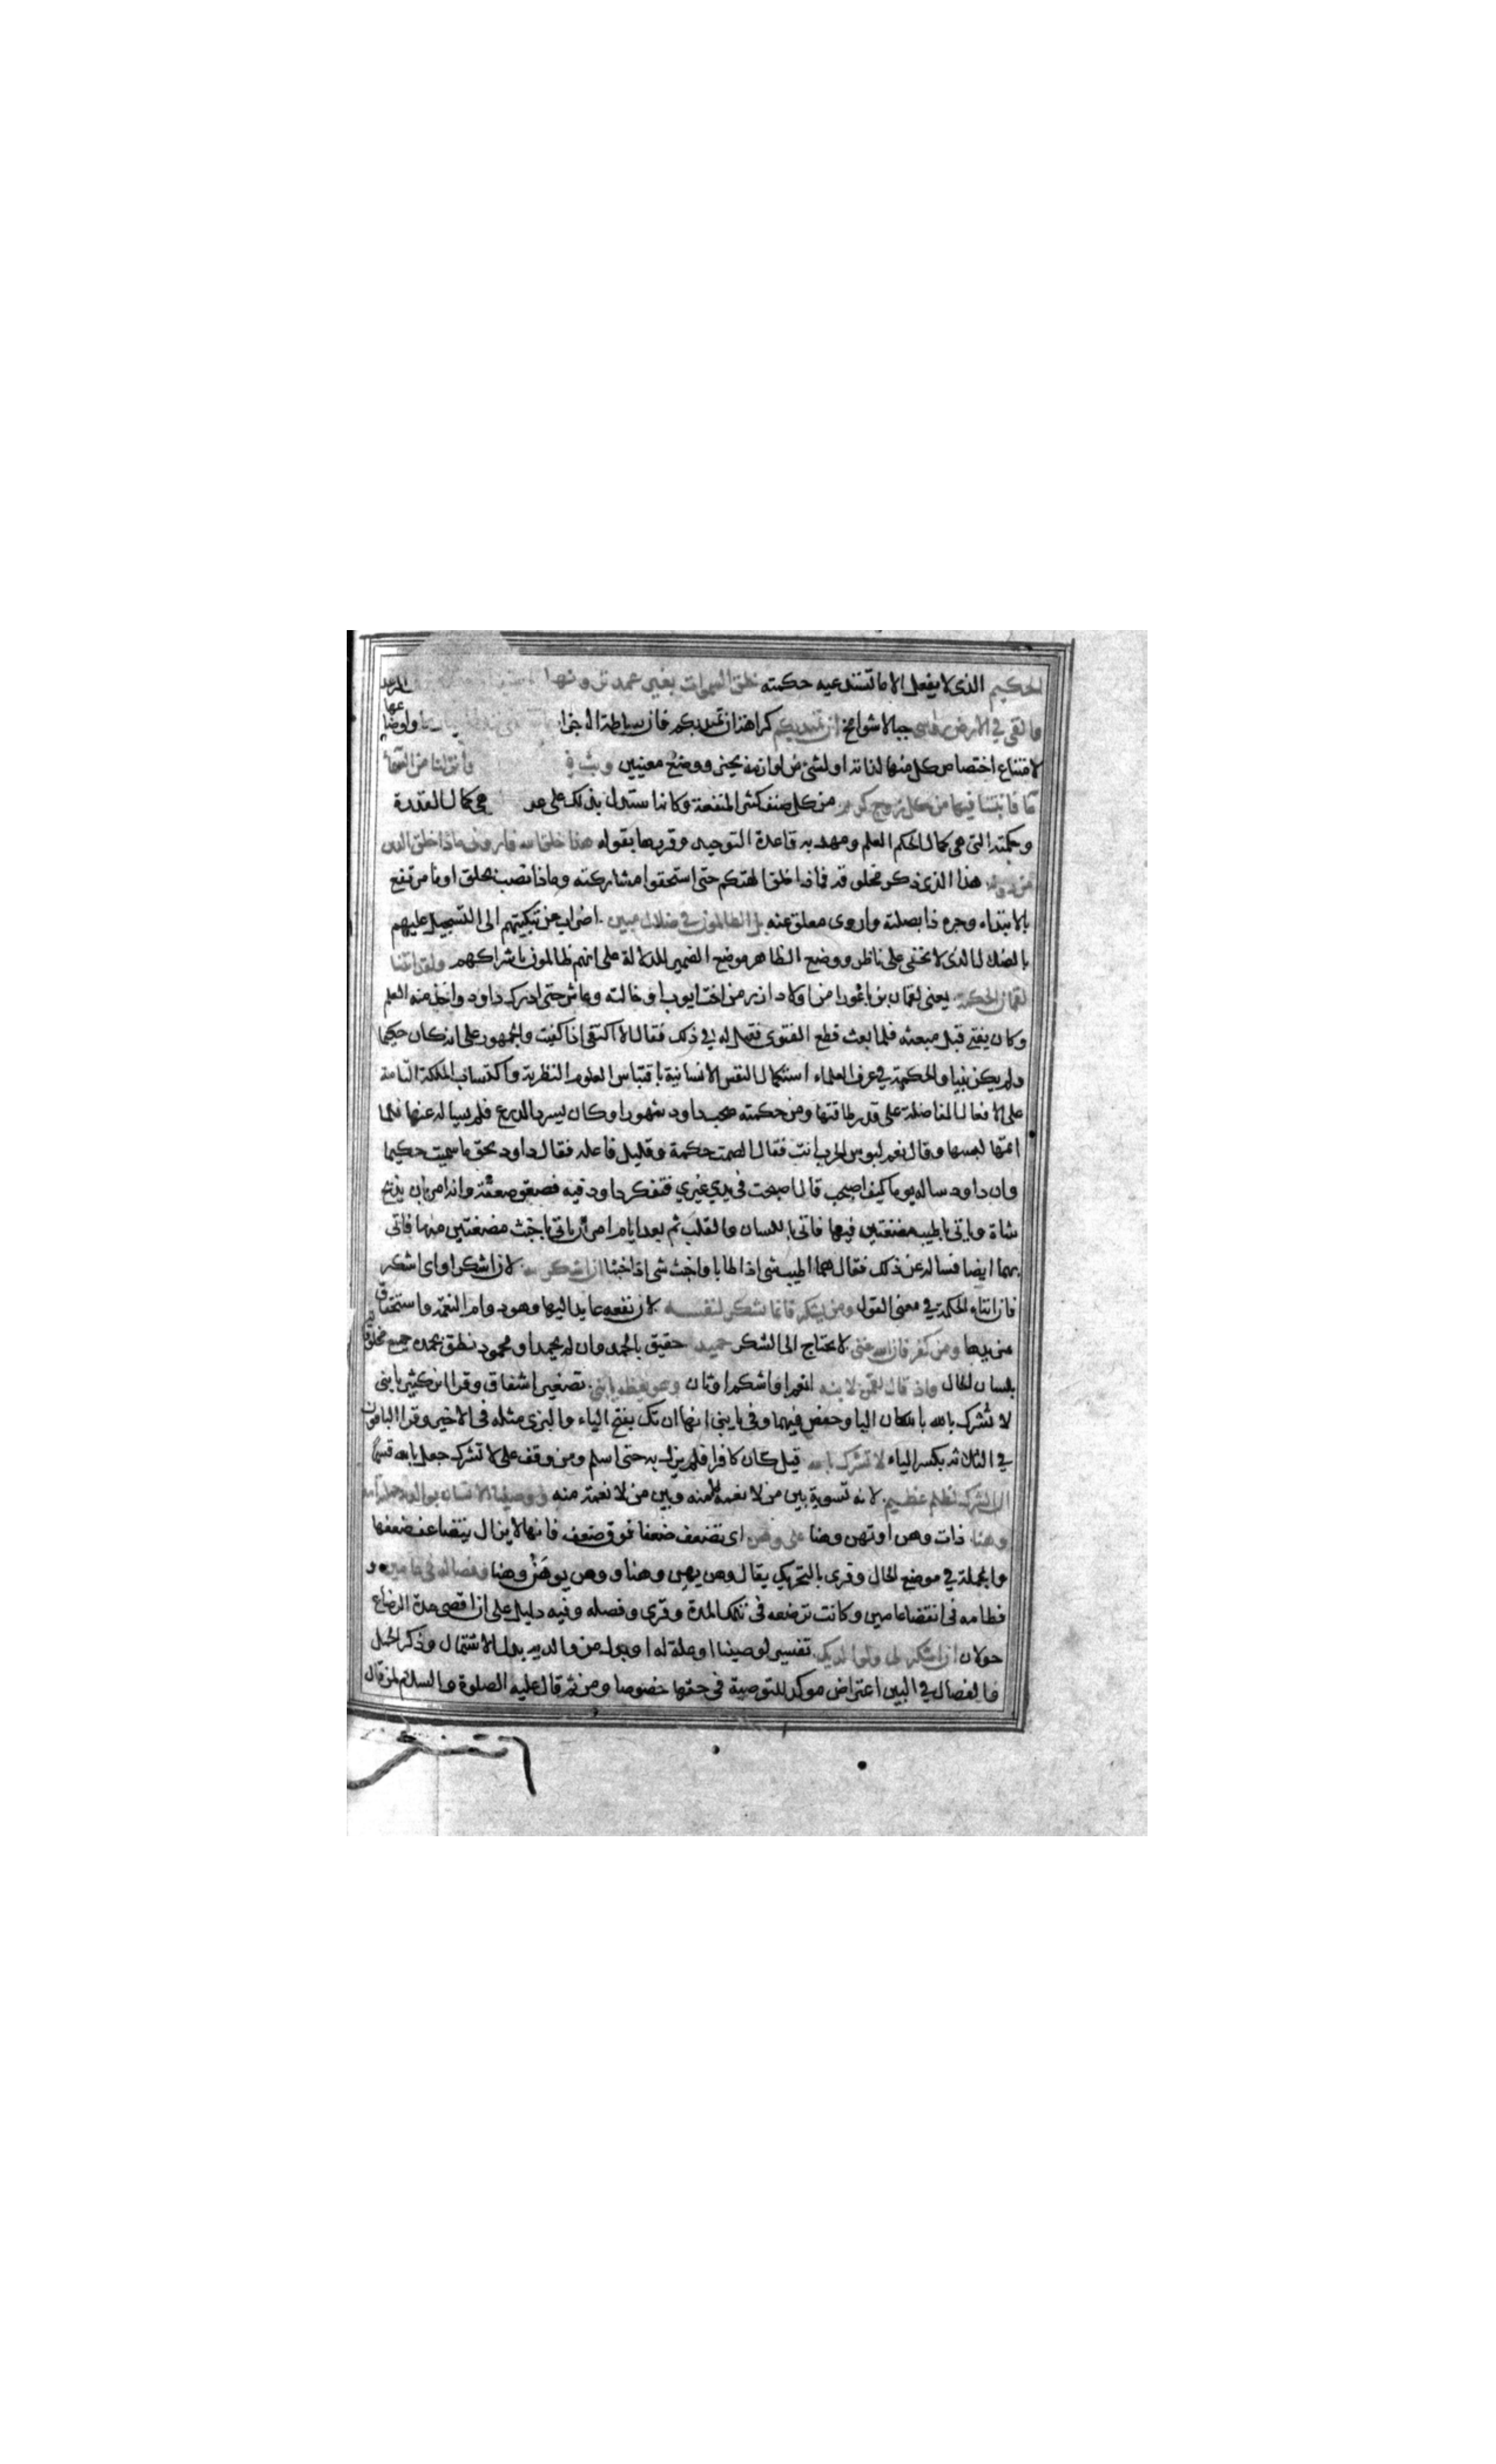 الحكيم الذى لا يفعل الا ما تستدعيه حكمته خلق السموات بغير عمد ترونها
والقى في الارض رواسى جبالا شوامخ ان تميد بكم كراهة ان تميد بكم فان بساطة اجزا
لامتناع اختصاص كل منها لذاته او لشئ من لوازمه بحيز ووضع معينين وبث في وانزلنا من السما
ما فانبتنا فيها من كل زوج كريم من كل صنف كثير المنفعة وكانه استدل بذلك على هى كمال القدرة
وحكمته التى هى كمال العلم ومهد به قاعدة التوحيد وقررها بقوله هذا خلق الله فارونى ماذا خلق الذين
من دونه هذا الذى ذكر مخلوقه فماذا خلق الهتكم حتى استحقوا مشاركته وماذا نصب بخلق او ما مرتفع
بالابتداء وخبره ذا بصلته واروى معلق عنه بل الظالمون في ضلال مبين اضراب عن تبكيتهم الى التسجيل عليهم
بالضلال الذى لا يخفى على ناظر ووضع الظاهر موضع الضمير للدلالة على انهم ظالمون باشراكهم ولقد اتينا
لقمان الحكمة يعنى لقمان بن باعورا من اولاد ازر من اخت ايوب او خالته وعاش حتى ادرك داود واخذ منه العلم
وكان يفتى قبل مبعثه فلما بعث قطع الفتوى فقيل له في ذلك فقال الا اكتفى اذا كفيت والجمهور على انه كان حكيما
ولم يكن نبيا والحكمة في عرف العلماء استكمال النفس الانسانية باقتباس العلوم النظرية واكتساب الملكة التامة
على الافعال الفاضلة على قدر طاقتها ومن حكمته صحب داود شهورا وكان يسرد الدرع فلم يساله عنها فلما
اتمها لبسها وقال نعم لبوس الحرب انت فقال الصمت حكمة وقليل فاعله فقال داود بحق ما سميت حكيما
وان داود ساله يوما كيف اصبحت قال اصبحت في يدي غيري فتفكر داود فيه فصعق صعقة وانه امر بان يذبح
شاة وياتى باطيب مضغتين فيها فاتى باللسان والقلب ثم بعد ايام امر ان ياتى باخبث مضغتين منها فاتى
بهما ايضا فساله عن ذلك فقال هما اطيب شى اذا طابا واخبث شى اذا خبثا ان اشكر لله لان اشكر او اى اشكر
فان ايتاء الحكمة في معنى القول ومن يشكر فانما يشكر لنفسه لان نفعه عايد اليها وهو دوام النعمة واستحقاق
مزيدها ومن كفر فان الله غنى لا يحتاج الى الشكر حميد حقيق بالحمد وان لم يحمد او محمود نطق بحمده جميع مخلوقاته
بلسان الحال واذ قال لقمن لابنه انعم او اشكم او ثان وهو يعظه يا بنى تصغير اشفاق وقرا ابن كثير يا بنى
لا تشرك بالله باسكان اليا وحفص فيهما وفى يا بنى انها ان تك بفتح الياء والبزى مثله فى الاخير وقرا الباقون
في الثلاثة بكسر الياء لا تشرك بالله قيل كان كافرا فلم يزل به حتى اسلم ومن وقف على لا تشرك جعل بالله قسما
ان الشرك لظلم عظيم لانه تسوية بين من لا نعمة الا منه وبين من لا نعمة منه ووصينا الانسان بوالديه حملته امه
وهنا ذات وهن او تهن وهنا على وهن اى تضعف ضعفا فوق ضعف فانها لا يزال يتضاعف ضعفها
والجملة في موضع الحال وقرى بالتحريك يقال وهن يهن وهنا ووهن يوهن وهنا وفصاله فى عامين و
فطامه فى انقضا عامين وكانت ترضعه فى تلك المدة وقرى وفصله وفيه دليل على ان اقصى مدة الرضاع
حولان ان اشكر لى ولوالديك تفسير لوصينا او علة له او بدل من والديه بدل الاشتمال وذكر الحمل
والفصال في البين اعتراض موكد للتوصية فى حقها خصوصا ومن ثم قال عليه الصلوة والسلام لمن قال